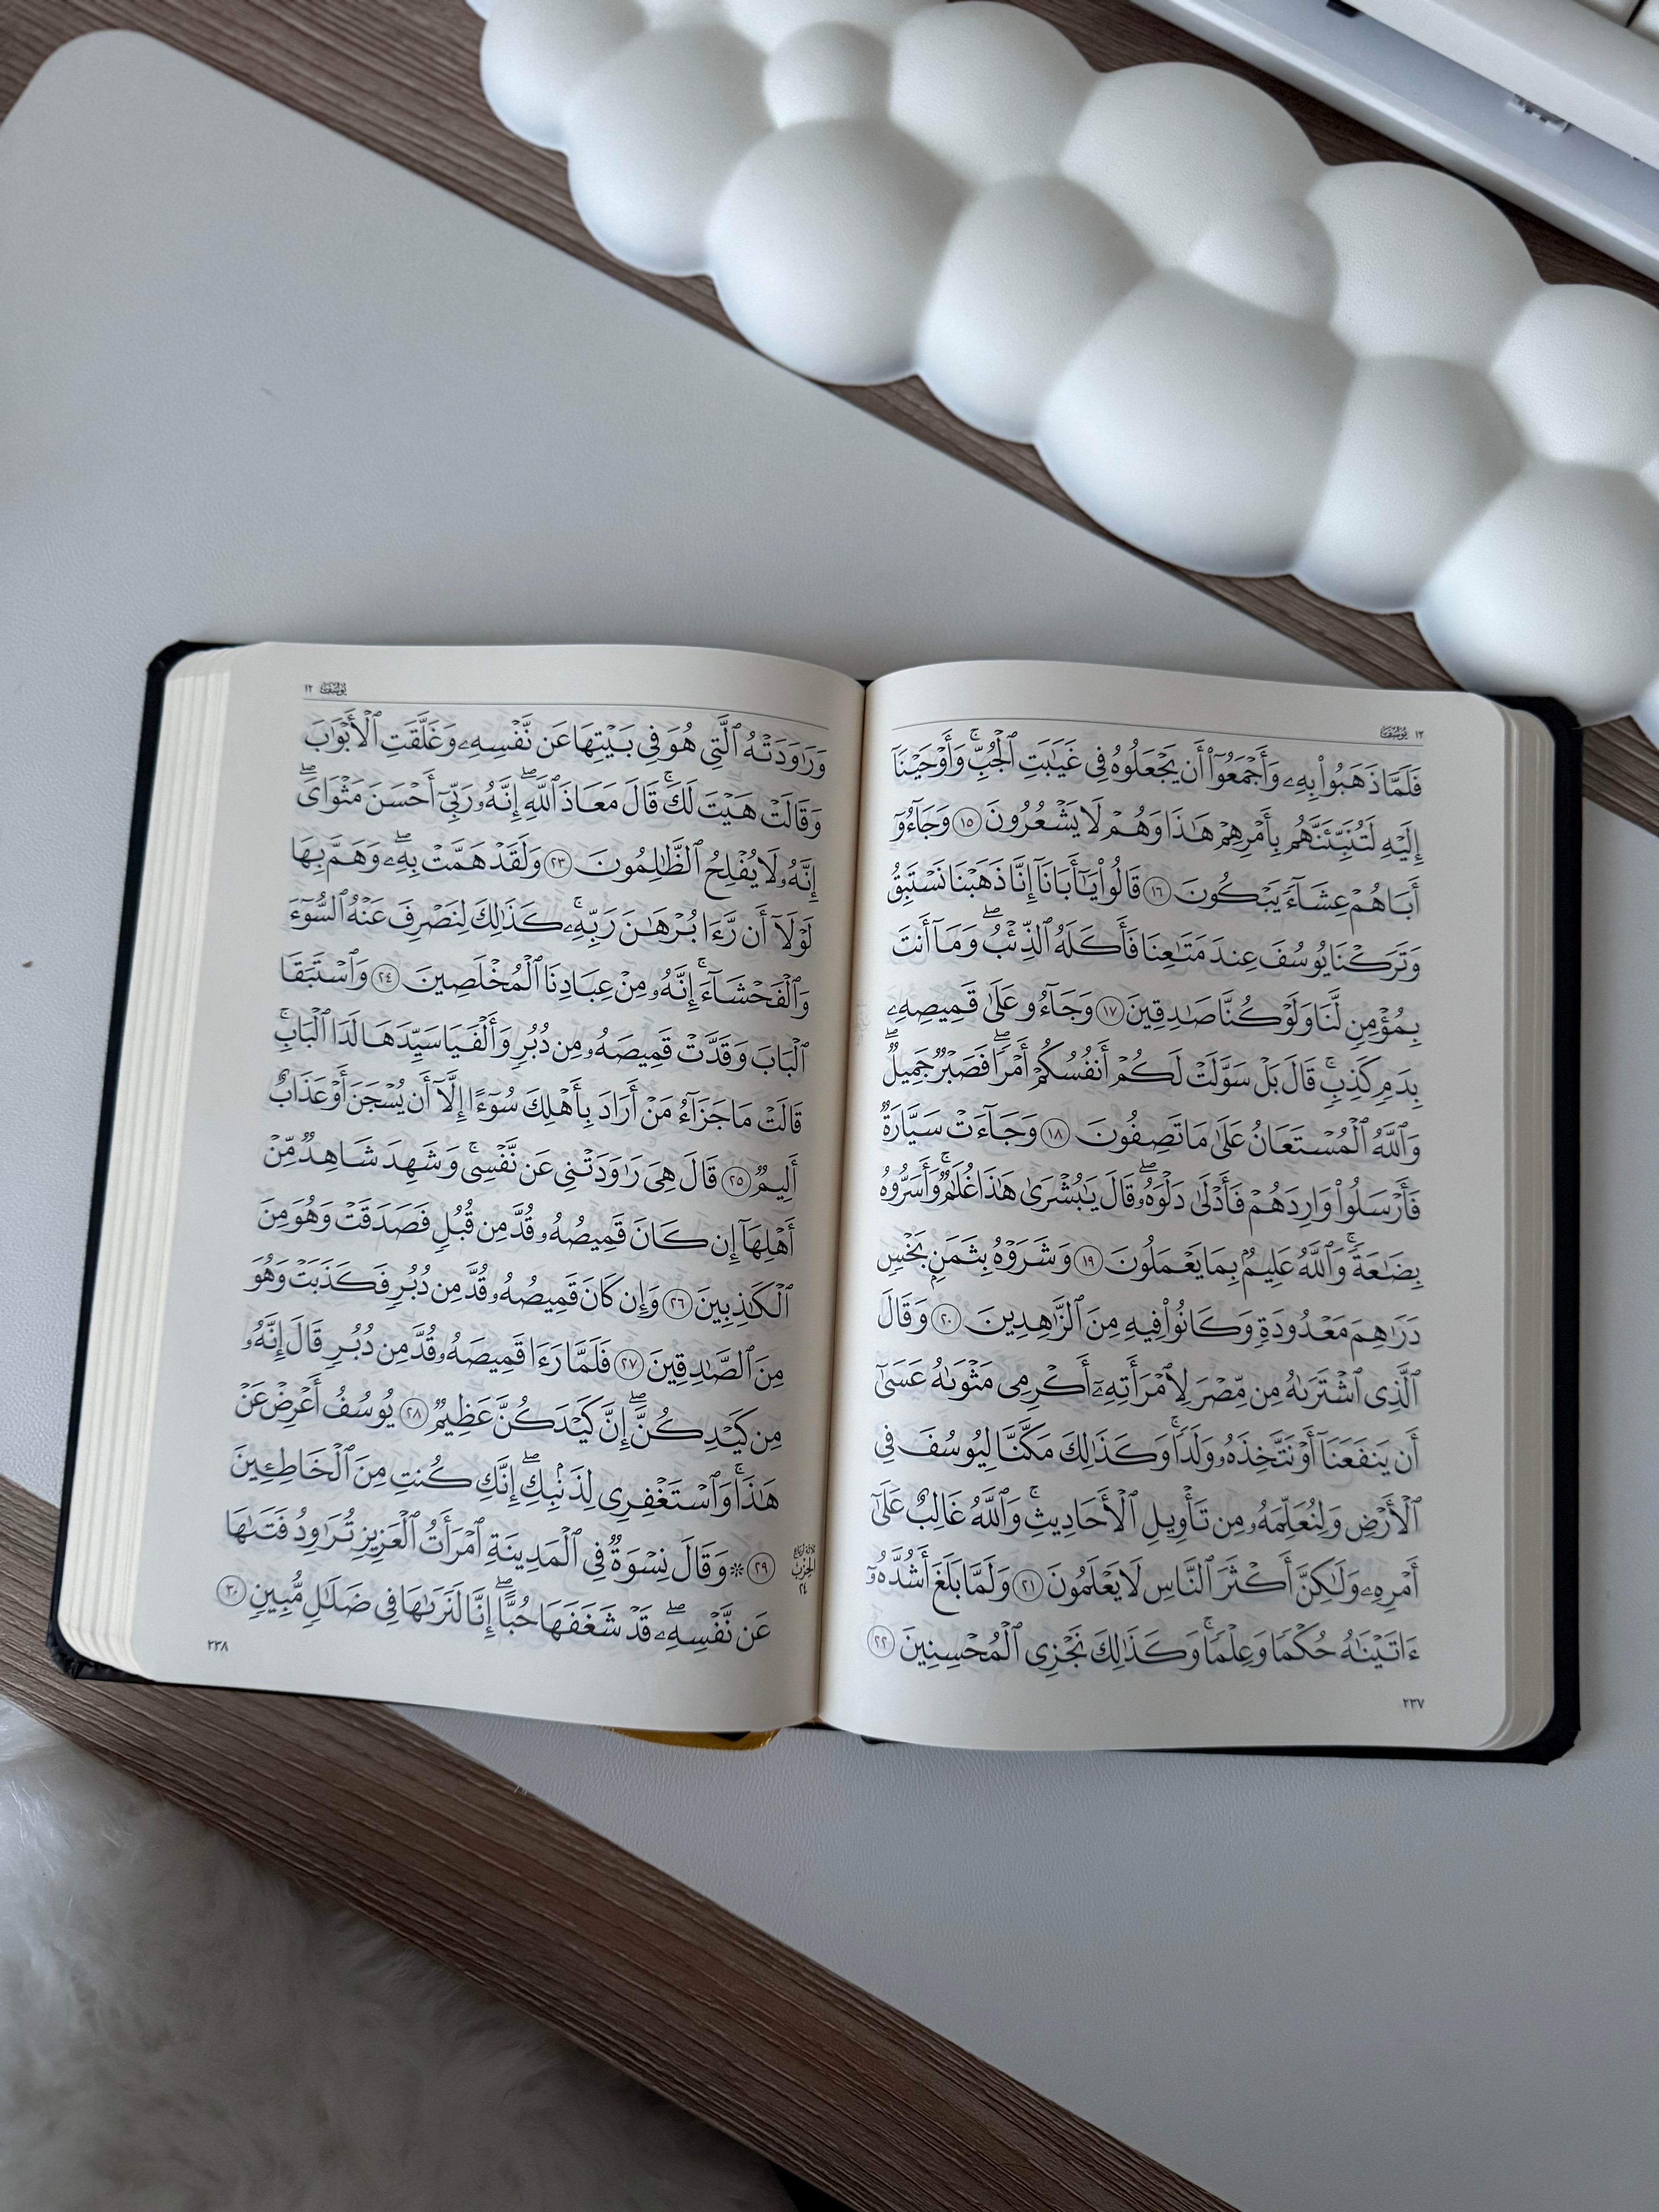 يوسف ١٢
فَلَمَّا ذَهَبُوا۟ بِهِۦ وَأَجْمَعُوٓا۟ أَن يَجْعَلُوهُ فِى غَيَٰبَتِ ٱلْجُبِّ ۚ وَأَوْحَيْنَآ
إِلَيْهِ لَتُنَبِّئَنَّهُم بِأَمْرِهِمْ هَٰذَا وَهُمْ لَا يَشْعُرُونَ ١٥ وَجَآءُوٓ
أَبَاهُمْ عِشَآءً يَبْكُونَ ١٦ قَالُوا۟ يَٰٓأَبَانَآ إِنَّا ذَهَبْنَا نَسْتَبِقُ
وَتَرَكْنَا يُوسُفَ عِندَ مَتَٰعِنَا فَأَكَلَهُ ٱلذِّئْبُ ۖ وَمَآ أَنتَ
بِمُؤْمِنٍ لَّنَا وَلَوْ كُنَّا صَٰدِقِينَ ١٧ وَجَآءُو عَلَىٰ قَمِيصِهِۦ
بِدَمٍ كَذِبٍ ۚ قَالَ بَلْ سَوَّلَتْ لَكُمْ أَنفُسُكُمْ أَمْرًا ۖ فَصَبْرٌ جَمِيلٌ ۖ
وَٱللَّهُ ٱلْمُسْتَعَانُ عَلَىٰ مَا تَصِفُونَ ١٨ وَجَآءَتْ سَيَّارَةٌ
فَأَرْسَلُوا۟ وَارِدَهُمْ فَأَدْلَىٰ دَلْوَهُۥ ۖ قَالَ يَٰبُشْرَىٰ هَٰذَا غُلَٰمٌ ۚ وَأَسَرُّوهُ
بِضَٰعَةً ۚ وَٱللَّهُ عَلِيمٌۢ بِمَا يَعْمَلُونَ ١٩ وَشَرَوْهُ بِثَمَنٍۭ بَخْسٍ
دَرَٰهِمَ مَعْدُودَةٍ وَكَانُوا۟ فِيهِ مِنَ ٱلزَّٰهِدِينَ ٢٠ وَقَالَ
ٱلَّذِى ٱشْتَرَىٰهُ مِن مِّصْرَ لِٱمْرَأَتِهِۦٓ أَكْرِمِى مَثْوَىٰهُ عَسَىٰٓ
أَن يَنفَعَنَآ أَوْ نَتَّخِذَهُۥ وَلَدًا ۚ وَكَذَٰلِكَ مَكَّنَّا لِيُوسُفَ فِى
ٱلْأَرْضِ وَلِنُعَلِّمَهُۥ مِن تَأْوِيلِ ٱلْأَحَادِيثِ ۚ وَٱللَّهُ غَالِبٌ عَلَىٰٓ
أَمْرِهِۦ وَلَٰكِنَّ أَكْثَرَ ٱلنَّاسِ لَا يَعْلَمُونَ ٢١ وَلَمَّا بَلَغَ أَشُدَّهُۥٓ
ءَاتَيْنَٰهُ حُكْمًا وَعِلْمًا ۚ وَكَذَٰلِكَ نَجْزِى ٱلْمُحْسِنِينَ ٢٢
٢٣٧
يوسف ١٢
وَرَٰوَدَتْهُ ٱلَّتِى هُوَ فِى بَيْتِهَا عَن نَّفْسِهِۦ وَغَلَّقَتِ ٱلْأَبْوَٰبَ
وَقَالَتْ هَيْتَ لَكَ ۚ قَالَ مَعَاذَ ٱللَّهِ ۖ إِنَّهُۥ رَبِّىٓ أَحْسَنَ مَثْوَاىَ ۖ
إِنَّهُۥ لَا يُفْلِحُ ٱلظَّٰلِمُونَ ٢٣ وَلَقَدْ هَمَّتْ بِهِۦ ۖ وَهَمَّ بِهَا
لَوْلَآ أَن رَّءَا بُرْهَٰنَ رَبِّهِۦ ۚ كَذَٰلِكَ لِنَصْرِفَ عَنْهُ ٱلسُّوٓءَ
وَٱلْفَحْشَآءَ ۚ إِنَّهُۥ مِنْ عِبَادِنَا ٱلْمُخْلَصِينَ ٢٤ وَٱسْتَبَقَا
ٱلْبَابَ وَقَدَّتْ قَمِيصَهُۥ مِن دُبُرٍ وَأَلْفَيَا سَيِّدَهَا لَدَا ٱلْبَابِ ۚ
قَالَتْ مَا جَزَآءُ مَنْ أَرَادَ بِأَهْلِكَ سُوٓءًا إِلَّآ أَن يُسْجَنَ أَوْ عَذَابٌ
أَلِيمٌ ٢٥ قَالَ هِىَ رَٰوَدَتْنِى عَن نَّفْسِى ۚ وَشَهِدَ شَاهِدٌ مِّنْ
أَهْلِهَآ إِن كَانَ قَمِيصُهُۥ قُدَّ مِن قُبُلٍ فَصَدَقَتْ وَهُوَ مِنَ
ٱلْكَٰذِبِينَ ٢٦ وَإِن كَانَ قَمِيصُهُۥ قُدَّ مِن دُبُرٍ فَكَذَبَتْ وَهُوَ
مِنَ ٱلصَّٰدِقِينَ ٢٧ فَلَمَّا رَءَا قَمِيصَهُۥ قُدَّ مِن دُبُرٍ قَالَ إِنَّهُۥ
مِن كَيْدِكُنَّ ۖ إِنَّ كَيْدَكُنَّ عَظِيمٌ ٢٨ يُوسُفُ أَعْرِضْ عَنْ
هَٰذَا ۚ وَٱسْتَغْفِرِى لِذَنۢبِكِ ۖ إِنَّكِ كُنتِ مِنَ ٱلْخَاطِـِٔينَ
٢٩ ۞ وَقَالَ نِسْوَةٌ فِى ٱلْمَدِينَةِ ٱمْرَأَتُ ٱلْعَزِيزِ تُرَٰوِدُ فَتَىٰهَا
عَن نَّفْسِهِۦ ۖ قَدْ شَغَفَهَا حُبًّا ۖ إِنَّا لَنَرَىٰهَا فِى ضَلَٰلٍ مُّبِينٍ ٣٠
الحزب
٢٤
٢٣٨